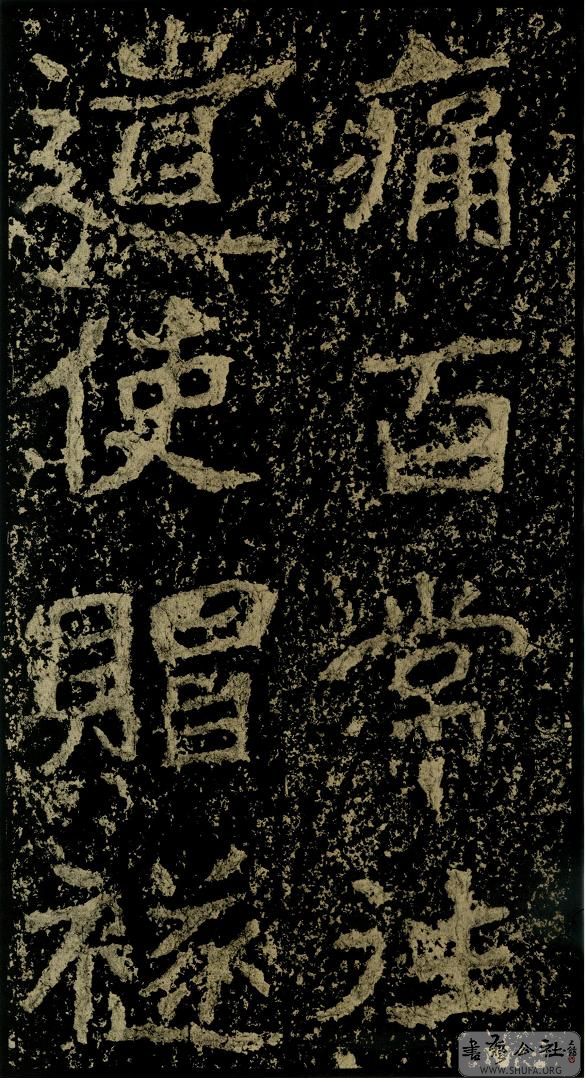 痛百常往
遣使賵襚
書藝公社
WWW.SHUFA.ORG